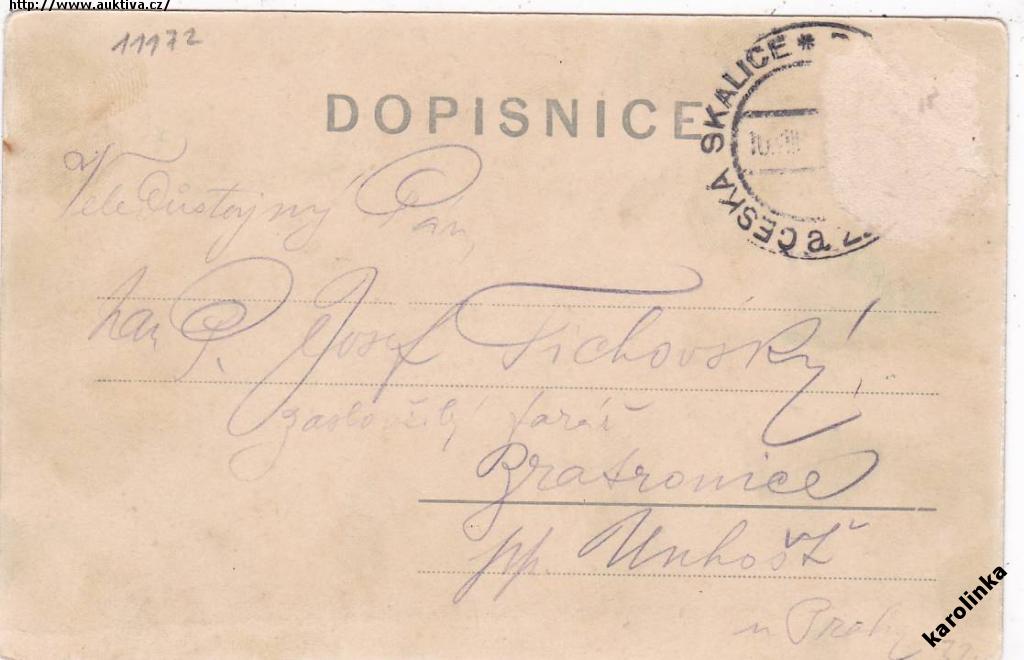 http://www.auktiva.cz/
11172
DOPISNICE
ČESKÁ SKALICE * a
Veledůstojný Pán,
P. Josef Tichovský
zasloužilý farář
Bratronice
pp. Unhošť
u Prahy
karolinka